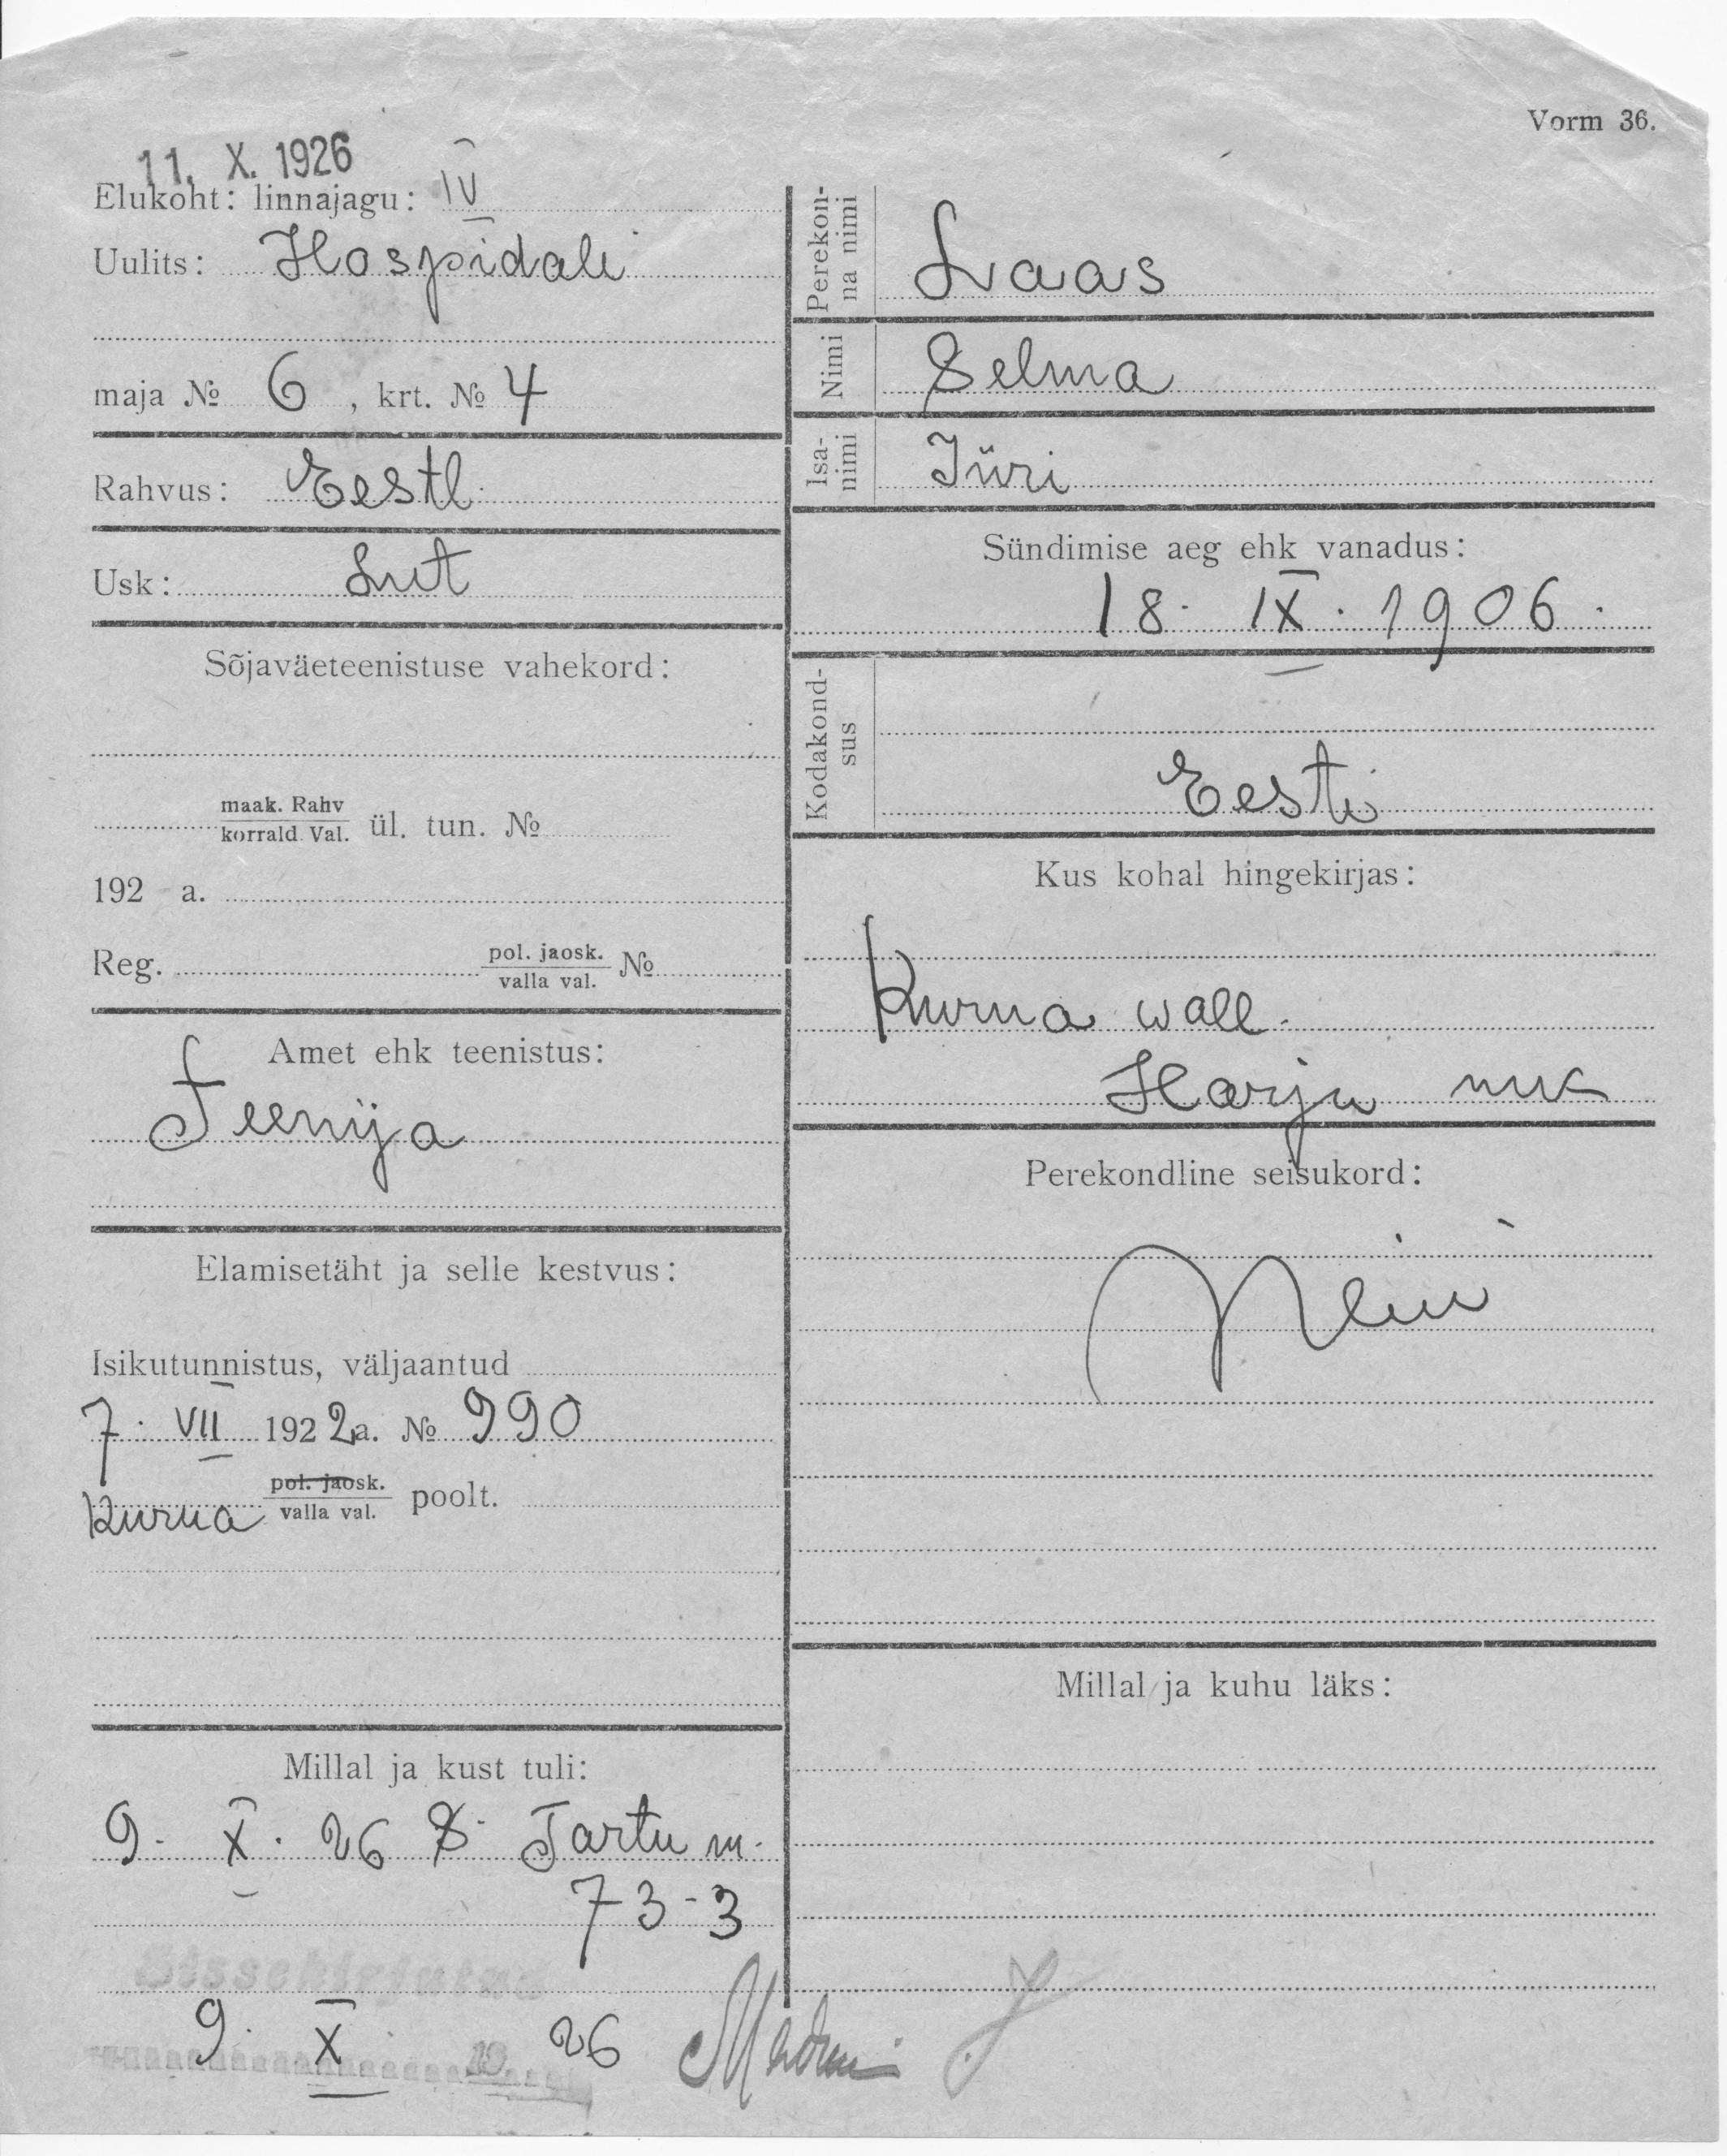 Vorm 36.
11. X. 1926
Elukoht: linnajagu: IV
Uulits: Hospidali
maja № 6, krt. № 4
Rahvus: Eestl.
Usk: Lut
Sõjaväeteenistuse vahekord:
maak. Rahv
korrald. Val. ül. tun. №
192 a.
Reg. pol. jaosk.
valla val. №
Amet ehk teenistus:
Teenija
Elamisetäht ja selle kestvus:
Isikutunnistus, väljaantud
7. VII 1922a. № 990
Kurna pol. jaosk.
valla val. poolt.
Millal ja kust tuli:
9. X. 26 S. Tartu m.
73-3
Sissekirjutud
9. X 19 26
Perekon-
na nimi Laas
Nimi Selma
Isa-
nimi Jüri
Sündimise aeg ehk vanadus:
18. IX. 1906.
Kodakond-
sus Eesti
Kus kohal hingekirjas:
Kurna wall.
Harju mk
Perekondline seisukord:
Neiu
Millal ja kuhu läks: